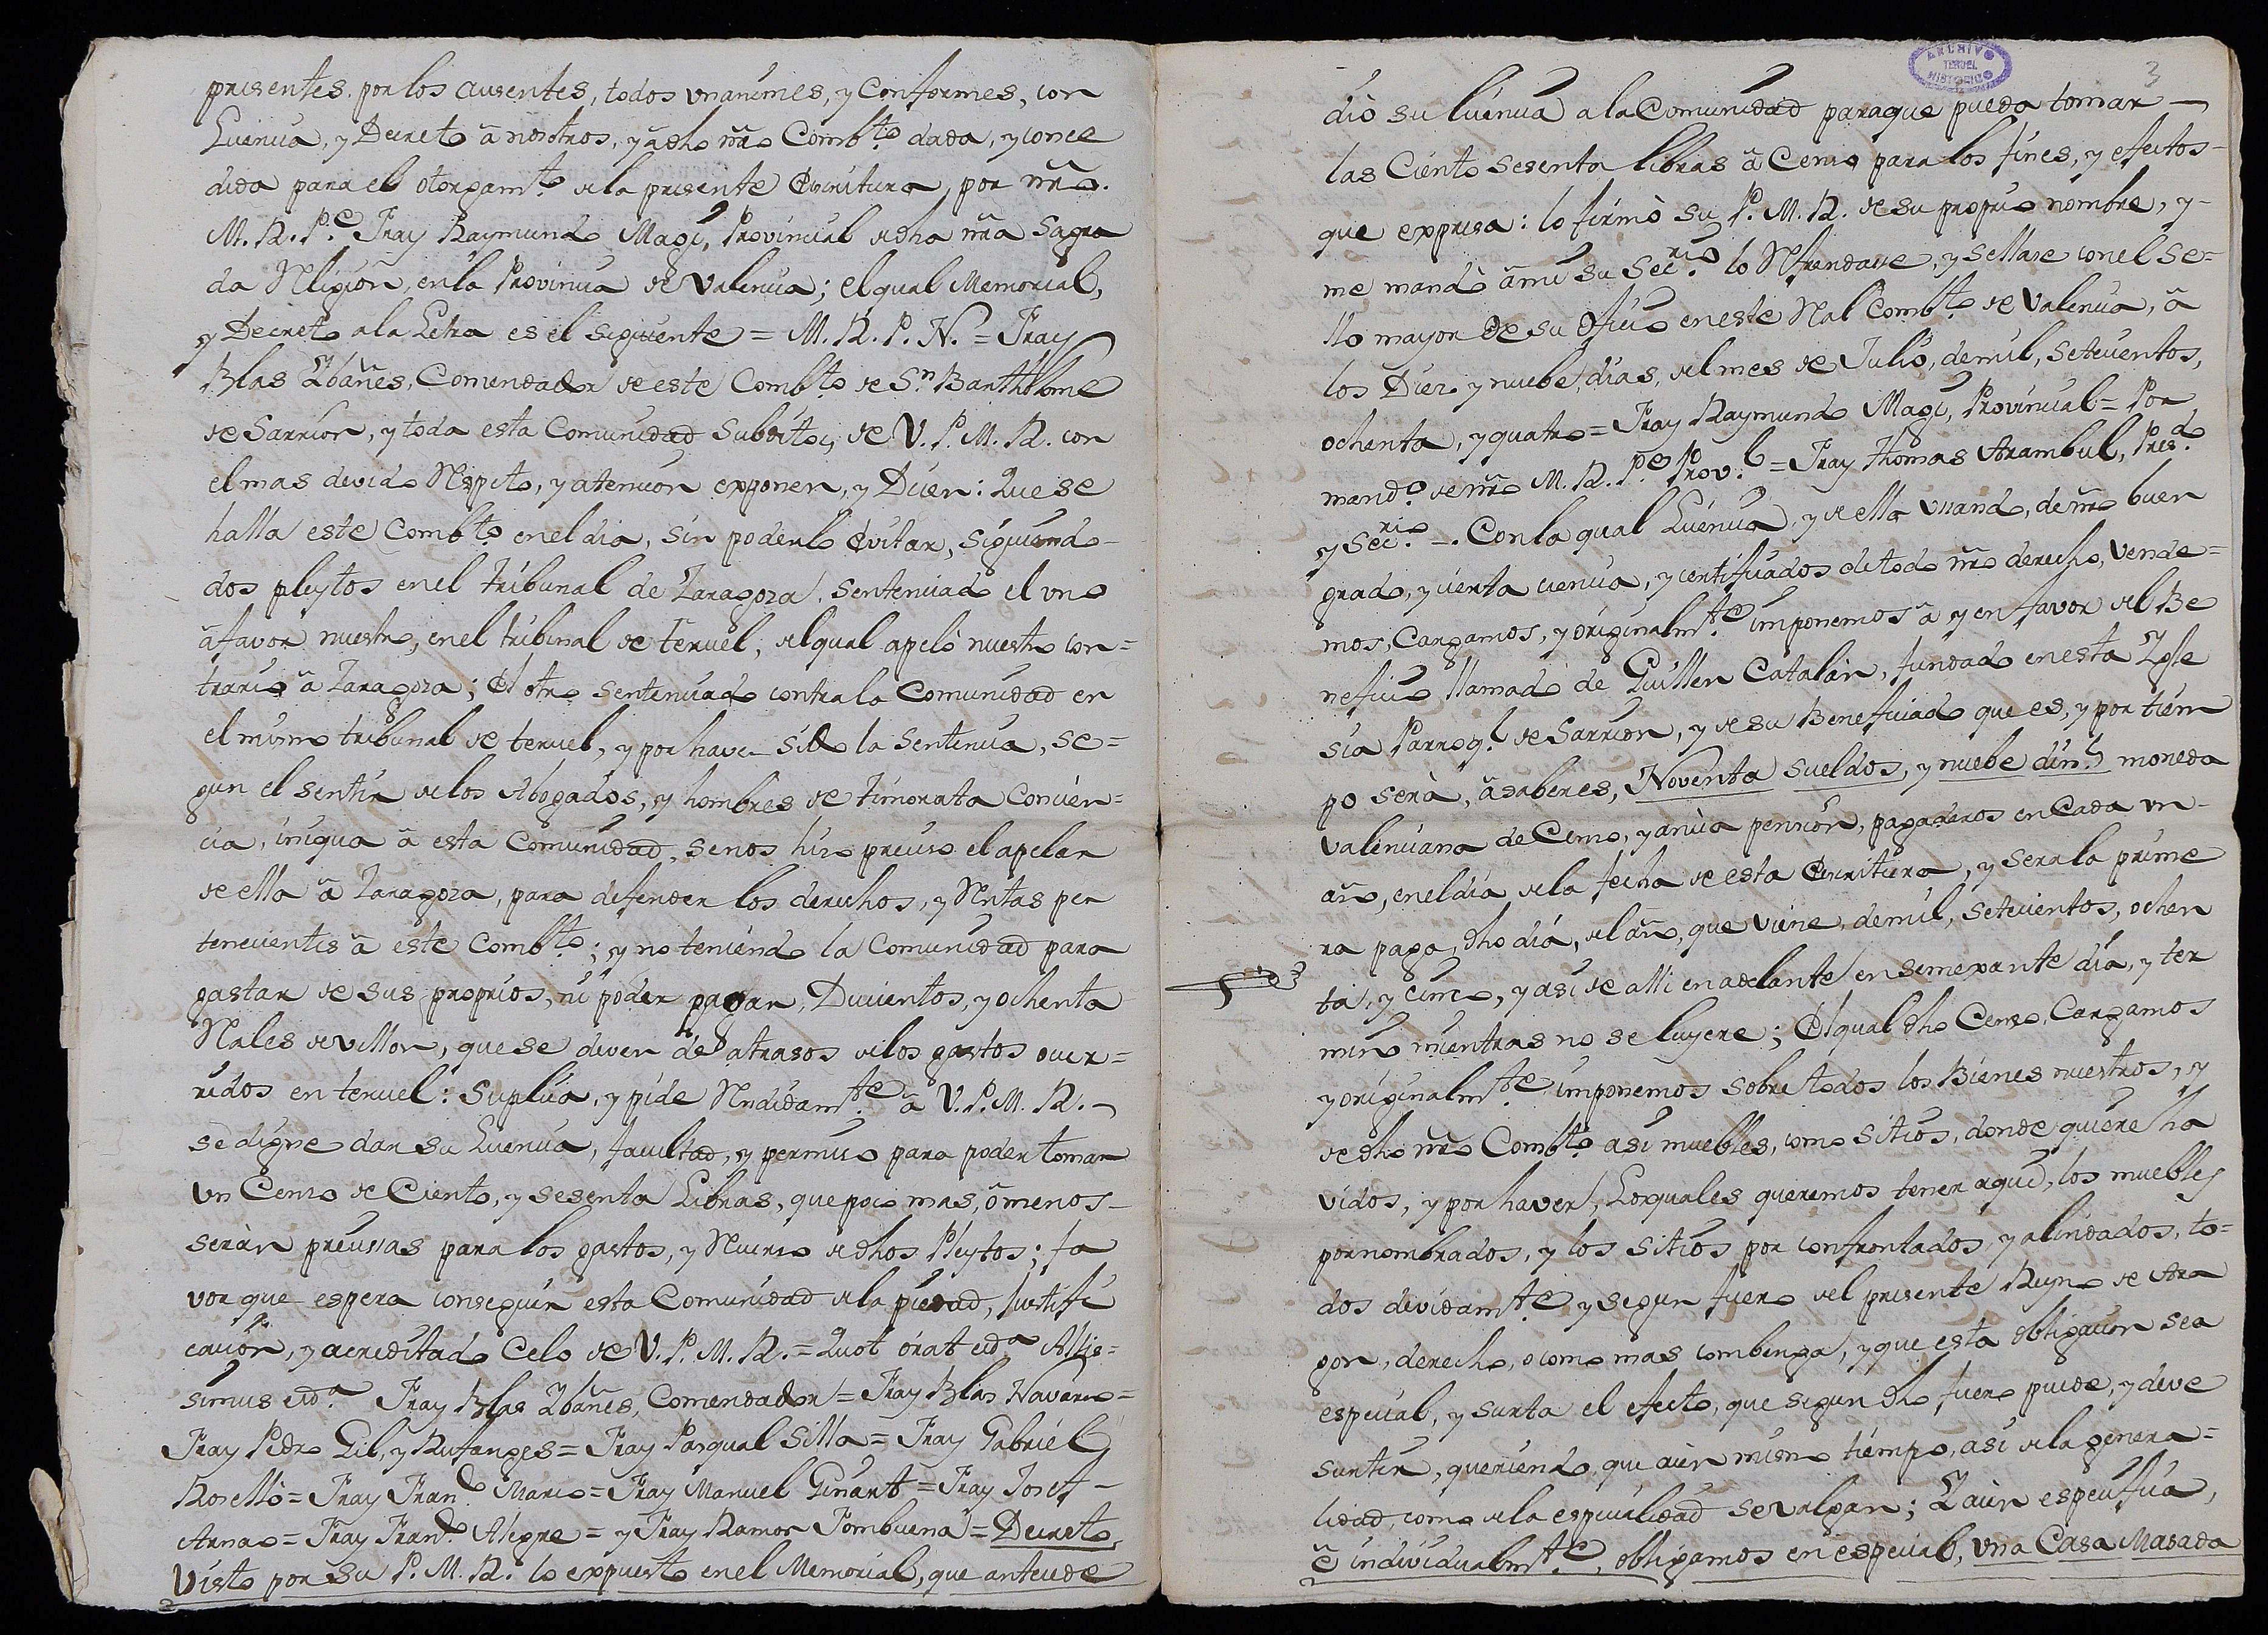 presentes, por los ausentes, todos unanimes, y Conformes, con
Licencia, y Decreto â nosotros, y â dho nr̃o Combto. dada, y conce
dida para el otorgamto. de la presente Escritura, por nr̃o.
M. R. Pe. Fray Raymundo Magi, Provincial de dha nr̃a Sagra
da Religion, en la Provincia de Valencia; el qual Memorial,
y Decreto a la Letra es el siguiente = M. R. P. N. = Fray
Blas Ybañes, Comendador de este Combto. de Sn. Barthtolome
de Sarrion, y toda esta Comunidad Subditos, de V. P. M. R. con
el mas devido Respeto, y atencion exponen, y Dicen: Que se
halla este Combto. en el dia, sin poderlo Evitar, siguiendo
dos pleytos en el tribunal de Zaragoza, sentenciado el uno
â favor nuestro, en el tribunal de teruel, del qual apelò nuestro con=
trario â Zaragoza; El otro sentenciado contra la Comunidad en
el mismo tribunal de teruel, y por haver sido la Sentencia, se=
gun el sentir de los Abogados, y hombres de timorata Concien=
cia, iniqua â esta Comunidad, se nos hizo preciso el apelar
de ella â Zaragoza, para defender los derechos, y Rentas per
tenecientes â este Combto.; y no teniendo la Comunidad para
gastar de sus proprios, ni poder pagar, Ducientos, y ochenta
Reales de vellon, que se deven de atrasos de los gastos ocur=
ridos en teruel: Suplica, y pide Rendidamte. â V. P. M. R. -
se digne dar su Licencia, facultad, y permiso para poder tomar
un Censo de Ciento, y sesenta Libras, que poco mas, ô menos -
seràn precissas para los gastos, y Recurso de dhos Pleytos; fa
vor que espera conseguir esta Comunidad de la piedad, Justifi
cacion, y acreditado Celo de V. P. M. R. = Quot órat eida. Altis=
simus eida. Fray Blas Ybañes, Comendador = Fray Blas Navarro =
Fray Pedro Gil, y Rufanges = Fray Pasqual Silla = Fray Gabriel
Rosellò = Fray Frando. Marco = Fray Manuel Ginart = Fray Josef -
Arnao = Fray Frando. Alegre = y Fray Ramon Fombuena = Decreto,
Visto por su P. M. R. lo expuesto en el Memorial, que antecede
3
diò su licencia a la Comunidad para que pueda tomar -
las Ciento sesenta libras â Censo para los fines, y efectos -
que expresa: lo firmò su P. M. R. de su proprio nombre, y -
me mandò â mi su Secrio. lo Refrendasse, y sellase con el se=
llo mayor de su oficio en este Real Combto. de Valencia, â
los Diez y nuebe, dias, del mes de Julio, de mil, setecientos,
ochenta, y quatro = Fray Raymundo Magi, Provincial = Por
mando. de nr̃o M. R. Pe. Provl. = Fray Thomas Arambul, Presdo.
y Secrio. -. Con la qual Licencia, y de ella usando, de nr̃o buen
grado, y cierta ciencia, y certificados de todo nr̃o derecho, Vende=
mos, Cargamos, y originalmte. imponemos â, y en favor del Be
neficio llamado de Guillen Catalàn, fundado en esta Ygle
sia Parroql. de Sarrion, y de su Beneficiado que es, y por tiem
po serà, â saber es, Noventa sueldos, y nuebe dins. moneda
valenciana de Censo, y anua pension, pagaderos en Cada un -
año, en el dia de la fecha de esta Escritura, y serà la prime
ra paga, dho dia, del año, que viene, de mil, setecientos, ochen
ta, y cinco, y asi de alli en adelante en semexante dia, y ter
mino mientras no se luyere; El qual dho Censo, Cargamos
y originalmte. imponemos sobre todos los Bienes nuestros, y
de dho nr̃o Combto. asi muebles, como sitios, donde quiere ha
vidos, y por haver, Los quales queremos tener aqui, los muebles
por nombrados, y los sitios por confrontados, y alindados, to=
dos devidamte. y segun fuero del presente Reyno de Ara
gon, derecho, o como mas combenga, y que esta obligacion sea
especial, y surta el efecto, que segun dho fuero puede, y deve
surtir, queriendo que aùn mismo tiempo, asi de la genera=
lidad, como de la especialidad se valgan; Y aùn especifica,
ê individualmte., obligamos en especial, una Casa Masada